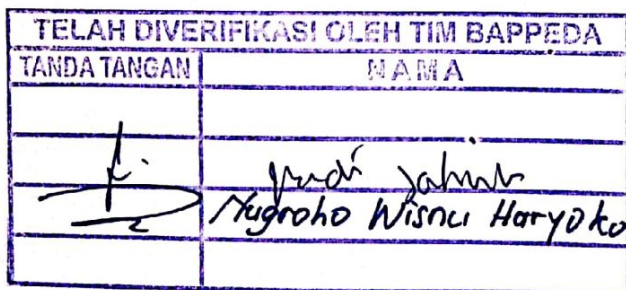 TELAH DIVERIFIKASI OLEH TIM BAPPEDA
TANDA TANGAN NAMA
Nugroho Wisnu Haryoko